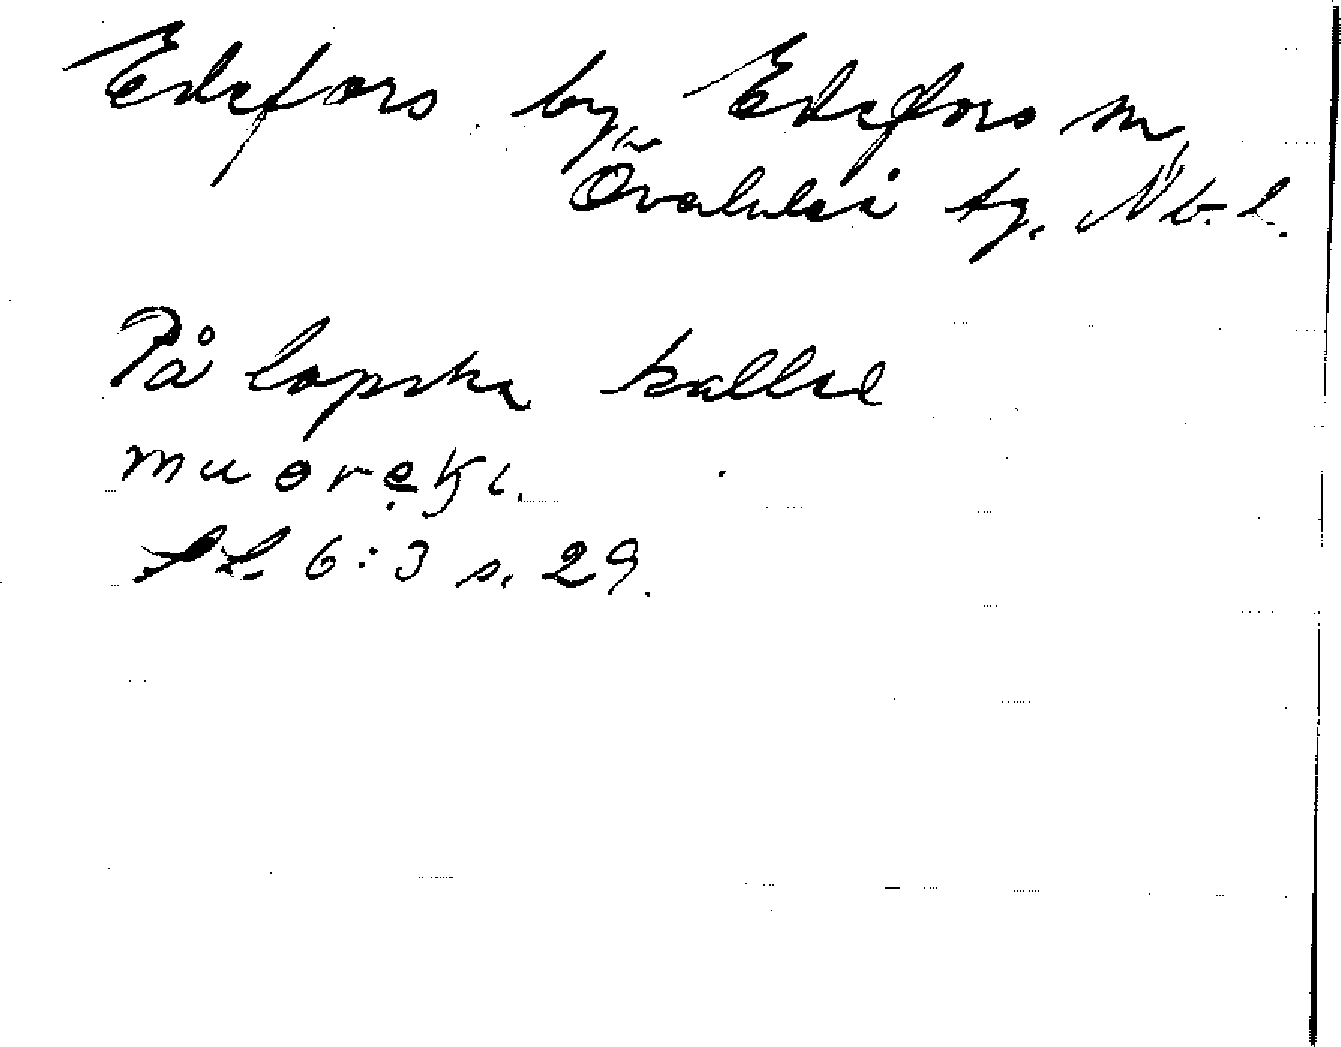 Edefors by Edefors sn,
Överluleå tg. Nb. l.
På lapska kallad
muorẹki.
SL 6:3 s. 29.